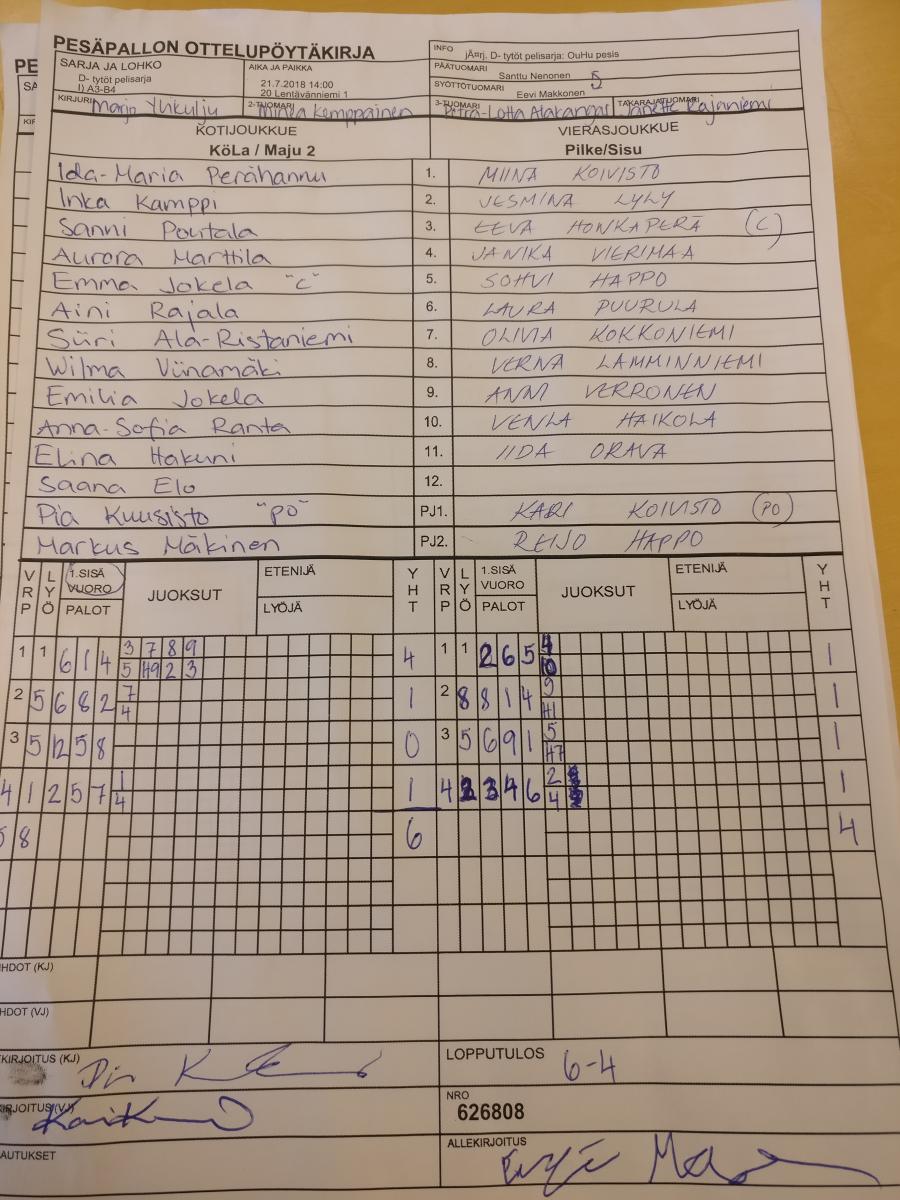 PESÄPALLON OTTELUPÖYTÄKIRJA
INFO jÃ¤rj. D- tytöt pelisarja: OuHu pesis
SARJA JA LOHKO
D- tytöt pelisarja
I) A3-B4
AIKA JA PAIKKA
21.7.2018 14:00
20 Lentävänniemi 1
PÄÄTUOMARI Santtu Nenonen 5
SYÖTTÖTUOMARI Eevi Makkonen
KIRJURI Marjo
2-TUOMARI Minea Kemppainen
3-TUOMARI Petra-Lotta Alakangas
TAKARAJATUOMARI Janette Rajaniemi
KOTIJOUKKUE VIERASJOUKKUE
KöLa / Maju 2 Pilke/Sisu
Ida-Maria Perähannu 1. MIINA KOIVISTO
Inka Kamppi 2. JESMINA LYLY
Sanni Poutala 3. EEVA HONKAPERÄ (C)
Aurora Marttila 4. JANIKA VIERIMAA
Emma Jokela "C" 5. SOHVI HAPPO
Aini Rajala 6. LAURA PUURULA
Siiri Ala-Ristaniemi 7. OLIVIA KOKKONIEMI
Wilma Viinamäki 8. VERNA LAMMINNIEMI
Emilia Jokela 9. ANNI VERRONEN
Anna-Sofia Ranta 10. VENLA HAIKOLA
Elina Hakuni 11. IIDA ORAVA
Saana Elo 12.
Pia Kuusisto "PO" PJ1. KARI KOIVISTO (PO)
Markus Mäkinen PJ2. REIJO HAPPO
VRP LYÖ 1.SISÄ VUORO PALOT JUOKSUT ETENIJÄ LYÖJÄ YHT VRP LYÖ 1.SISÄ VUORO PALOT JUOKSUT ETENIJÄ LYÖJÄ YHT
3 7 8 9
1 1 6 1 4 4 1 1 2 6 5 1
5 H9 2 3
7 9
2 5 6 8 2 1 2 8 8 1 4 1
4 H1
5
3 5 12 5 8 0 3 5 6 9 1 1
H7
1 2
4 1 2 5 7 1 4 2 3 4 6 1
4 4
5 8 6 4
HDOT (KJ)
HDOT (VJ)
KIRJOITUS (KJ)
LOPPUTULOS 6-4
KIRJOITUS (VJ)
NRO
626808
AUTUKSET
ALLEKIRJOITUS